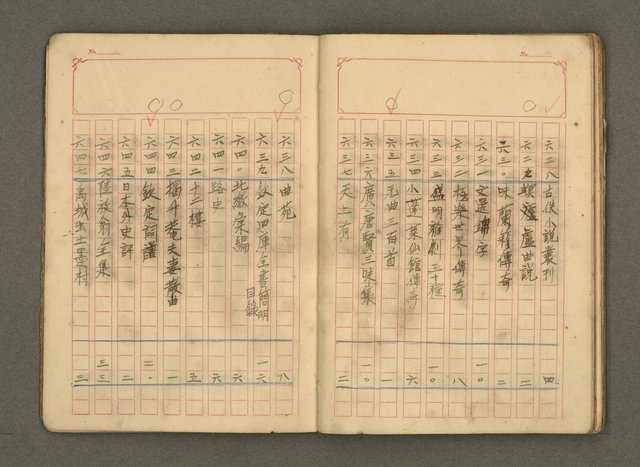 No.
六二八古佚小說叢刊 四
六二九螺 盧曲說 二
六三〇味蘭簃傳奇 二
六三一文選 字 一〇
六三二極樂世界傳奇 八
六三三盛明雜劇三十種 一〇
六三四小蓬萊仙館傳奇 六
六三五元曲三百首 一
六三六廣唐賢三昧集 一〇
六三七天 二
No.
六三八曲苑 八
六三九欽定四庫全書簡明目錄 一六
六四〇北徼彙編 六
六四一路史 六
六四二十二樓 五
六四三楊升菴夫妻散曲 一
六四四欽定詞譜 二〇
六四五日本外史評 二
六四六陸放翁全集 三三
六四七禹城出土墨 三